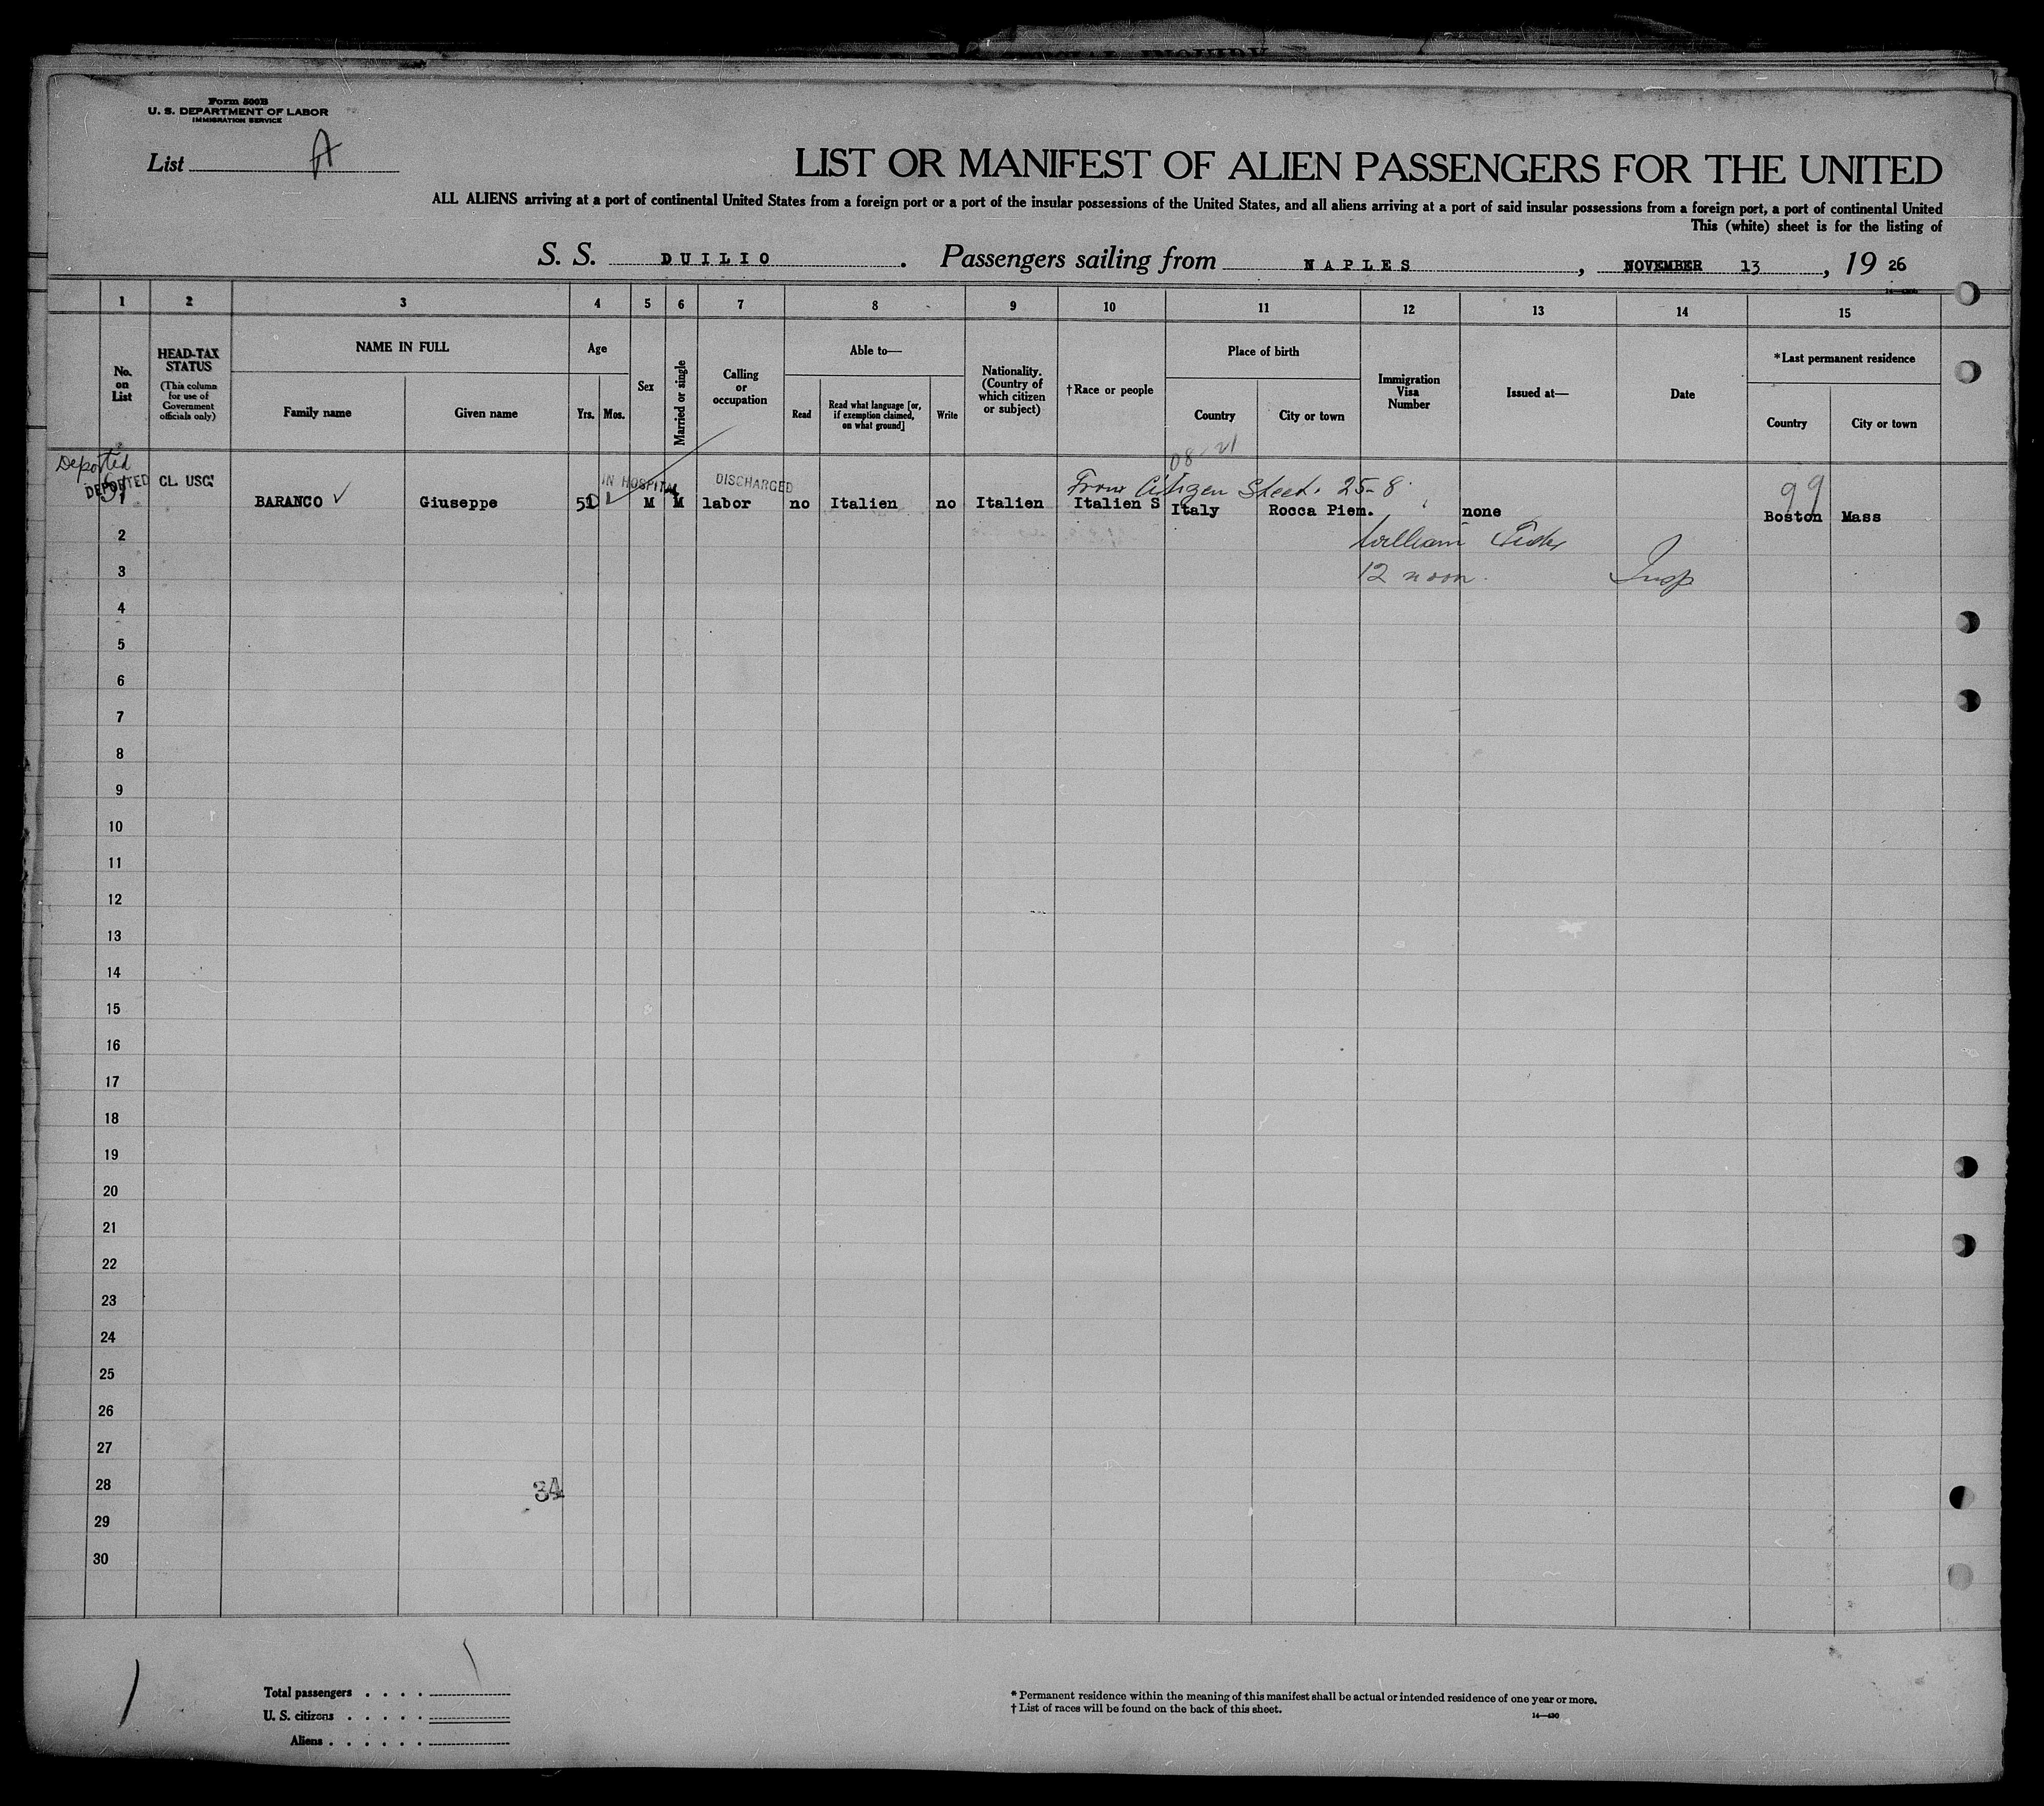 Form 500B
U. S. DEPARTMENT OF LABOR
IMMIGRATION SERVICE
List A
LIST OR MANIFEST OF ALIEN PASSENGERS FOR THE UNITED
ALL ALIENS arriving at a port of continental United States from a foreign port or a port of the insular possessions of the United States, and all aliens arriving at a port of said insular possessions from a foreign port, a port of continental United
This (white) sheet is for the listing of
S. S. DUILIO. Passengers sailing from NAPLES, NOVEMBER 13, 1926
1 2 3 4 5 6 7 8 9 10 11 12 13 14 15
No. on List
HEAD-TAX STATUS
(This column for use of Government officials only)
NAME IN FULL
Family name
Given name
Age
Yrs.
Mos.
Sex
Married or single
Calling or occupation
Able to—
Read
Read what language [or, if exemption claimed, on what ground]
Write
Nationality. (Country of which citizen or subject)
†Race or people
Place of birth
Country
City or town
Immigration Visa Number
Issued at—
Date
*Last permanent residence
Country
City or town
08-21
Deported
DEPORTED CL. USC. IN HOSPITAL DISCHARGED From Citizen Sheet. 25-8 99
1 BARANCO Giuseppe 51 M M labor no Italien no Italien Italien S Italy Rocca Piem. none Boston Mass
2 William
3 12 noon. Insp
4
5
6
7
8
9
10
11
12
13
14
15
16
17
18
19
20
21
22
23
24
25
26
27
28 34
29
30
Total passengers . . . .
U. S. citizens . . . . .
Aliens . . . . . .
* Permanent residence within the meaning of this manifest shall be actual or intended residence of one year or more.
† List of races will be found on the back of this sheet.
14—430